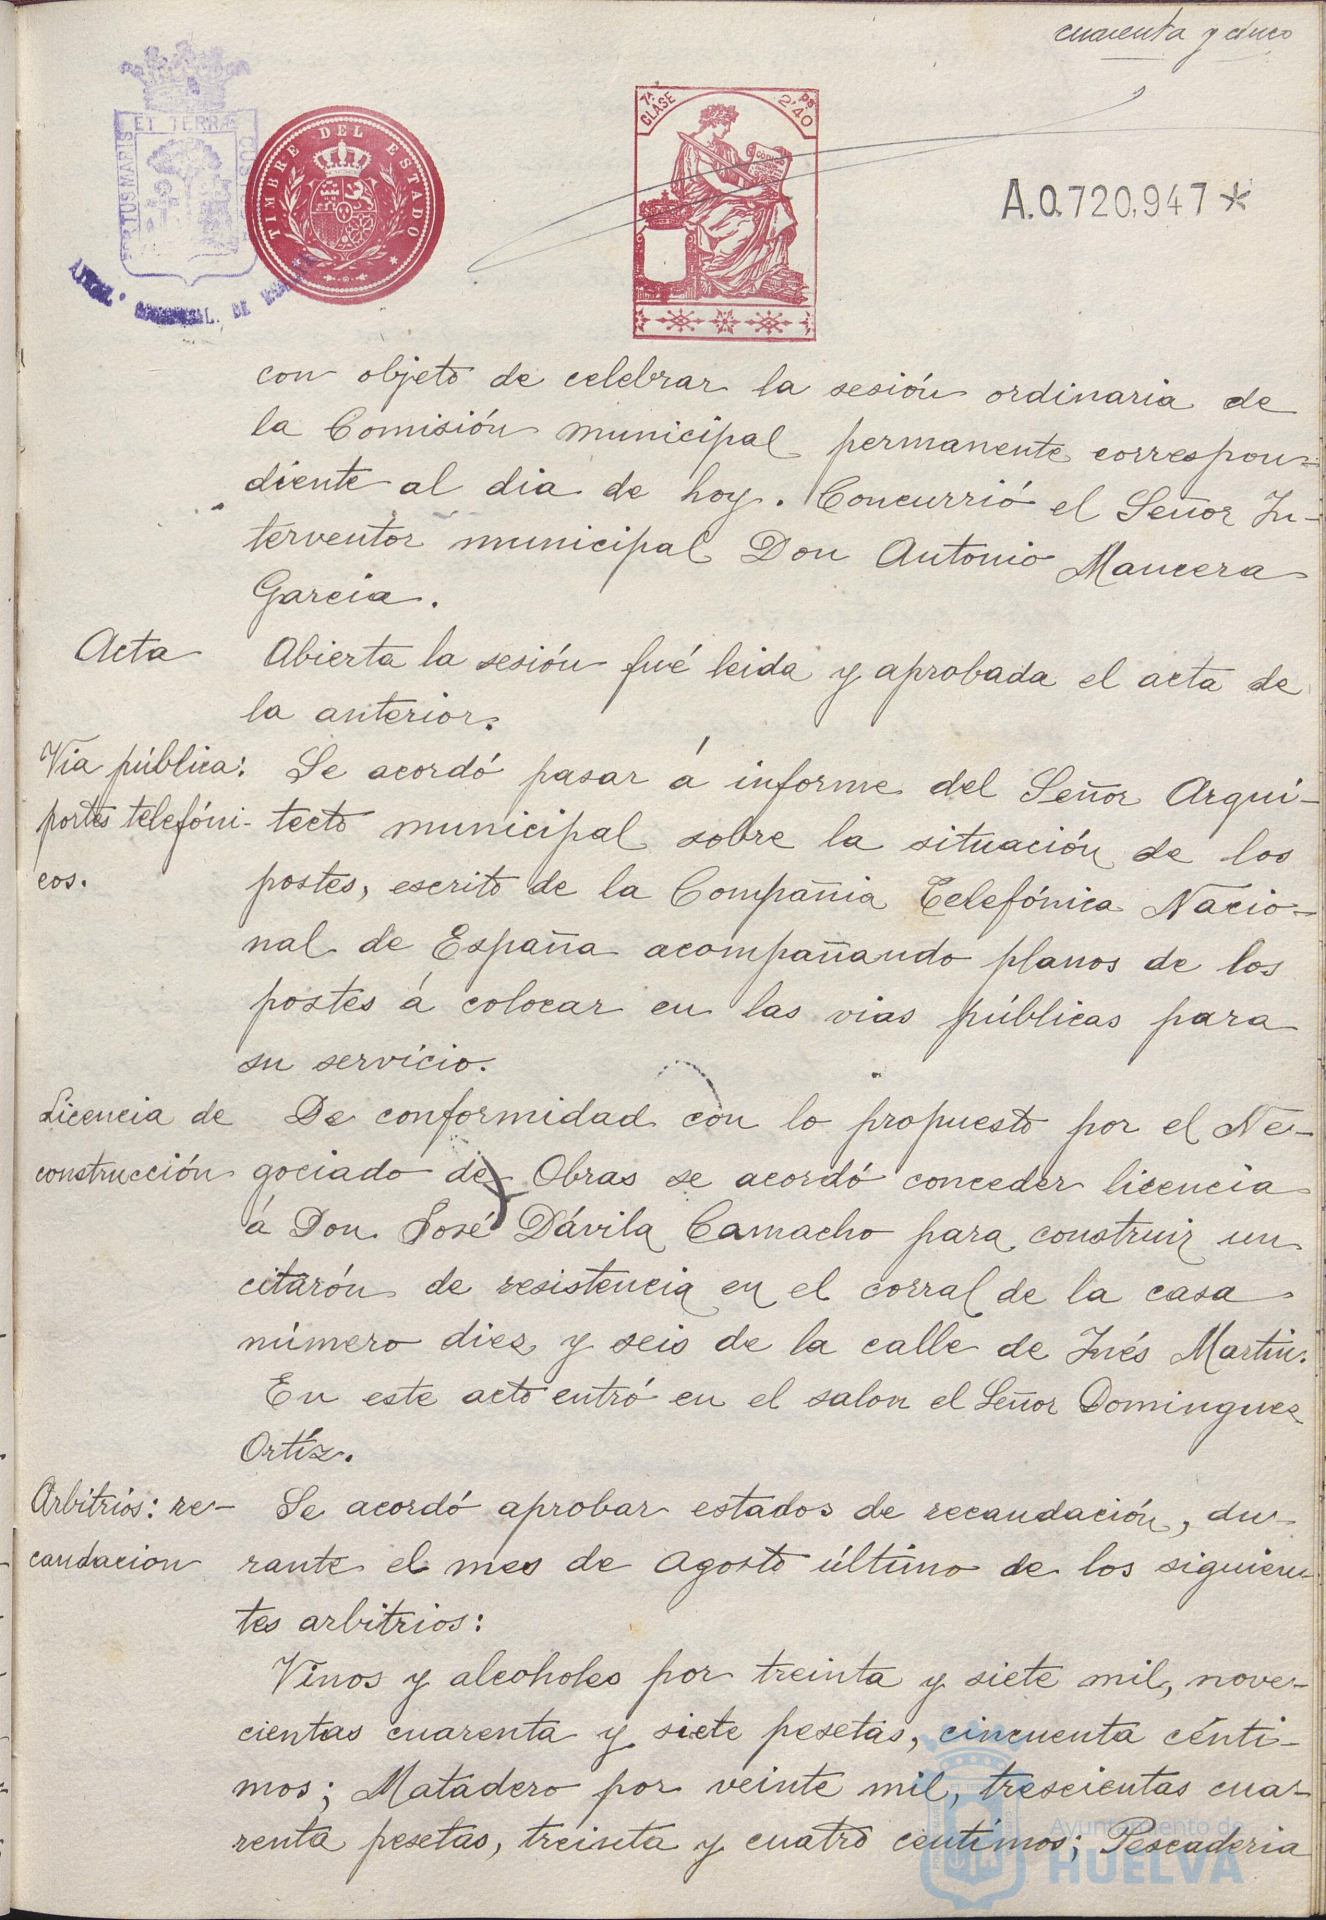 cuarenta y cinco
PORTUS MARIS ET TERRAE CUSTODIA
TIMBRE DEL ESTADO
7ª CLASE
2'40 ps
A.0.720,947*
con objeto de celebrar la sesión ordinaria de
la Comisión municipal permanente correspon-
diente al dia de hoy. Concurrió el Señor In-
terventor municipal Don Antonio Mancera
Garcia.
Acta
Abierta la sesión fué leida y aprobada el acta de
la anterior.
Via pública:
portes telefóni-
cos.
Se acordó pasar á informe del Señor Arqui-
tecto municipal sobre la situación de los
postes, escrito de la Compañia Telefónica Nacio-
nal de España acompañando planos de los
postes á colocar en las vias públicas para
su servicio.
Licencia de
construcción
De conformidad con lo propuesto por el Ne-
gociado de Obras se acordó conceder licencia
á Don José Dávila Camacho para construir un
citarón de resistencia en el corral de la casa
número diez y seis de la calle de Inés Martin.
En este acto entró en el salon el Señor Dominguez
Ortíz.
Arbitrios: re-
caudacion
Se acordó aprobar estados de recaudación, du-
rante el mes de Agosto último de los siguien-
tes arbitrios:
Vinos y alcoholes por treinta y siete mil, nove-
cientas cuarenta y siete pesetas, cincuenta cénti-
mos; Matadero por veinte mil, trescientas cua-
renta pesetas, treinta y cuatro centimos; Pescaderia
Ayuntamiento de
HUELVA